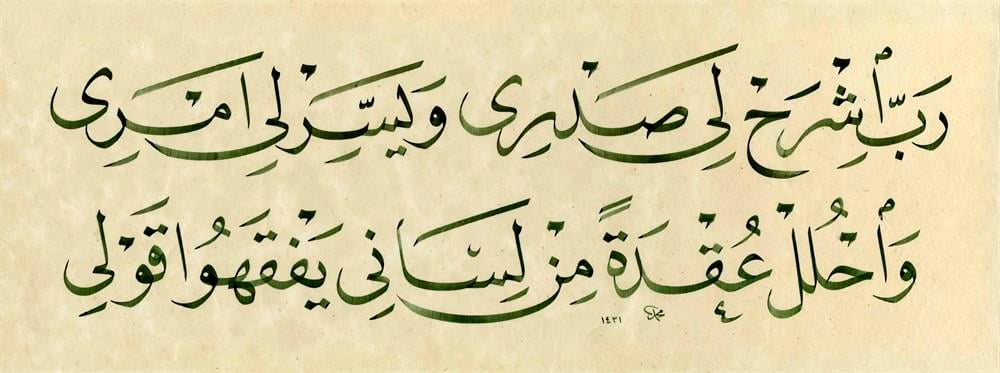 رَبِّ ٱشْرَحْ لِي صَدْرِى وَيَسِّرْ لِي اَمْرِى
وَٱحْلُلْ عُقْدَةً مِنْ لِسَانِي يَفْقَهُوا قَوْلِي
١٤٣١